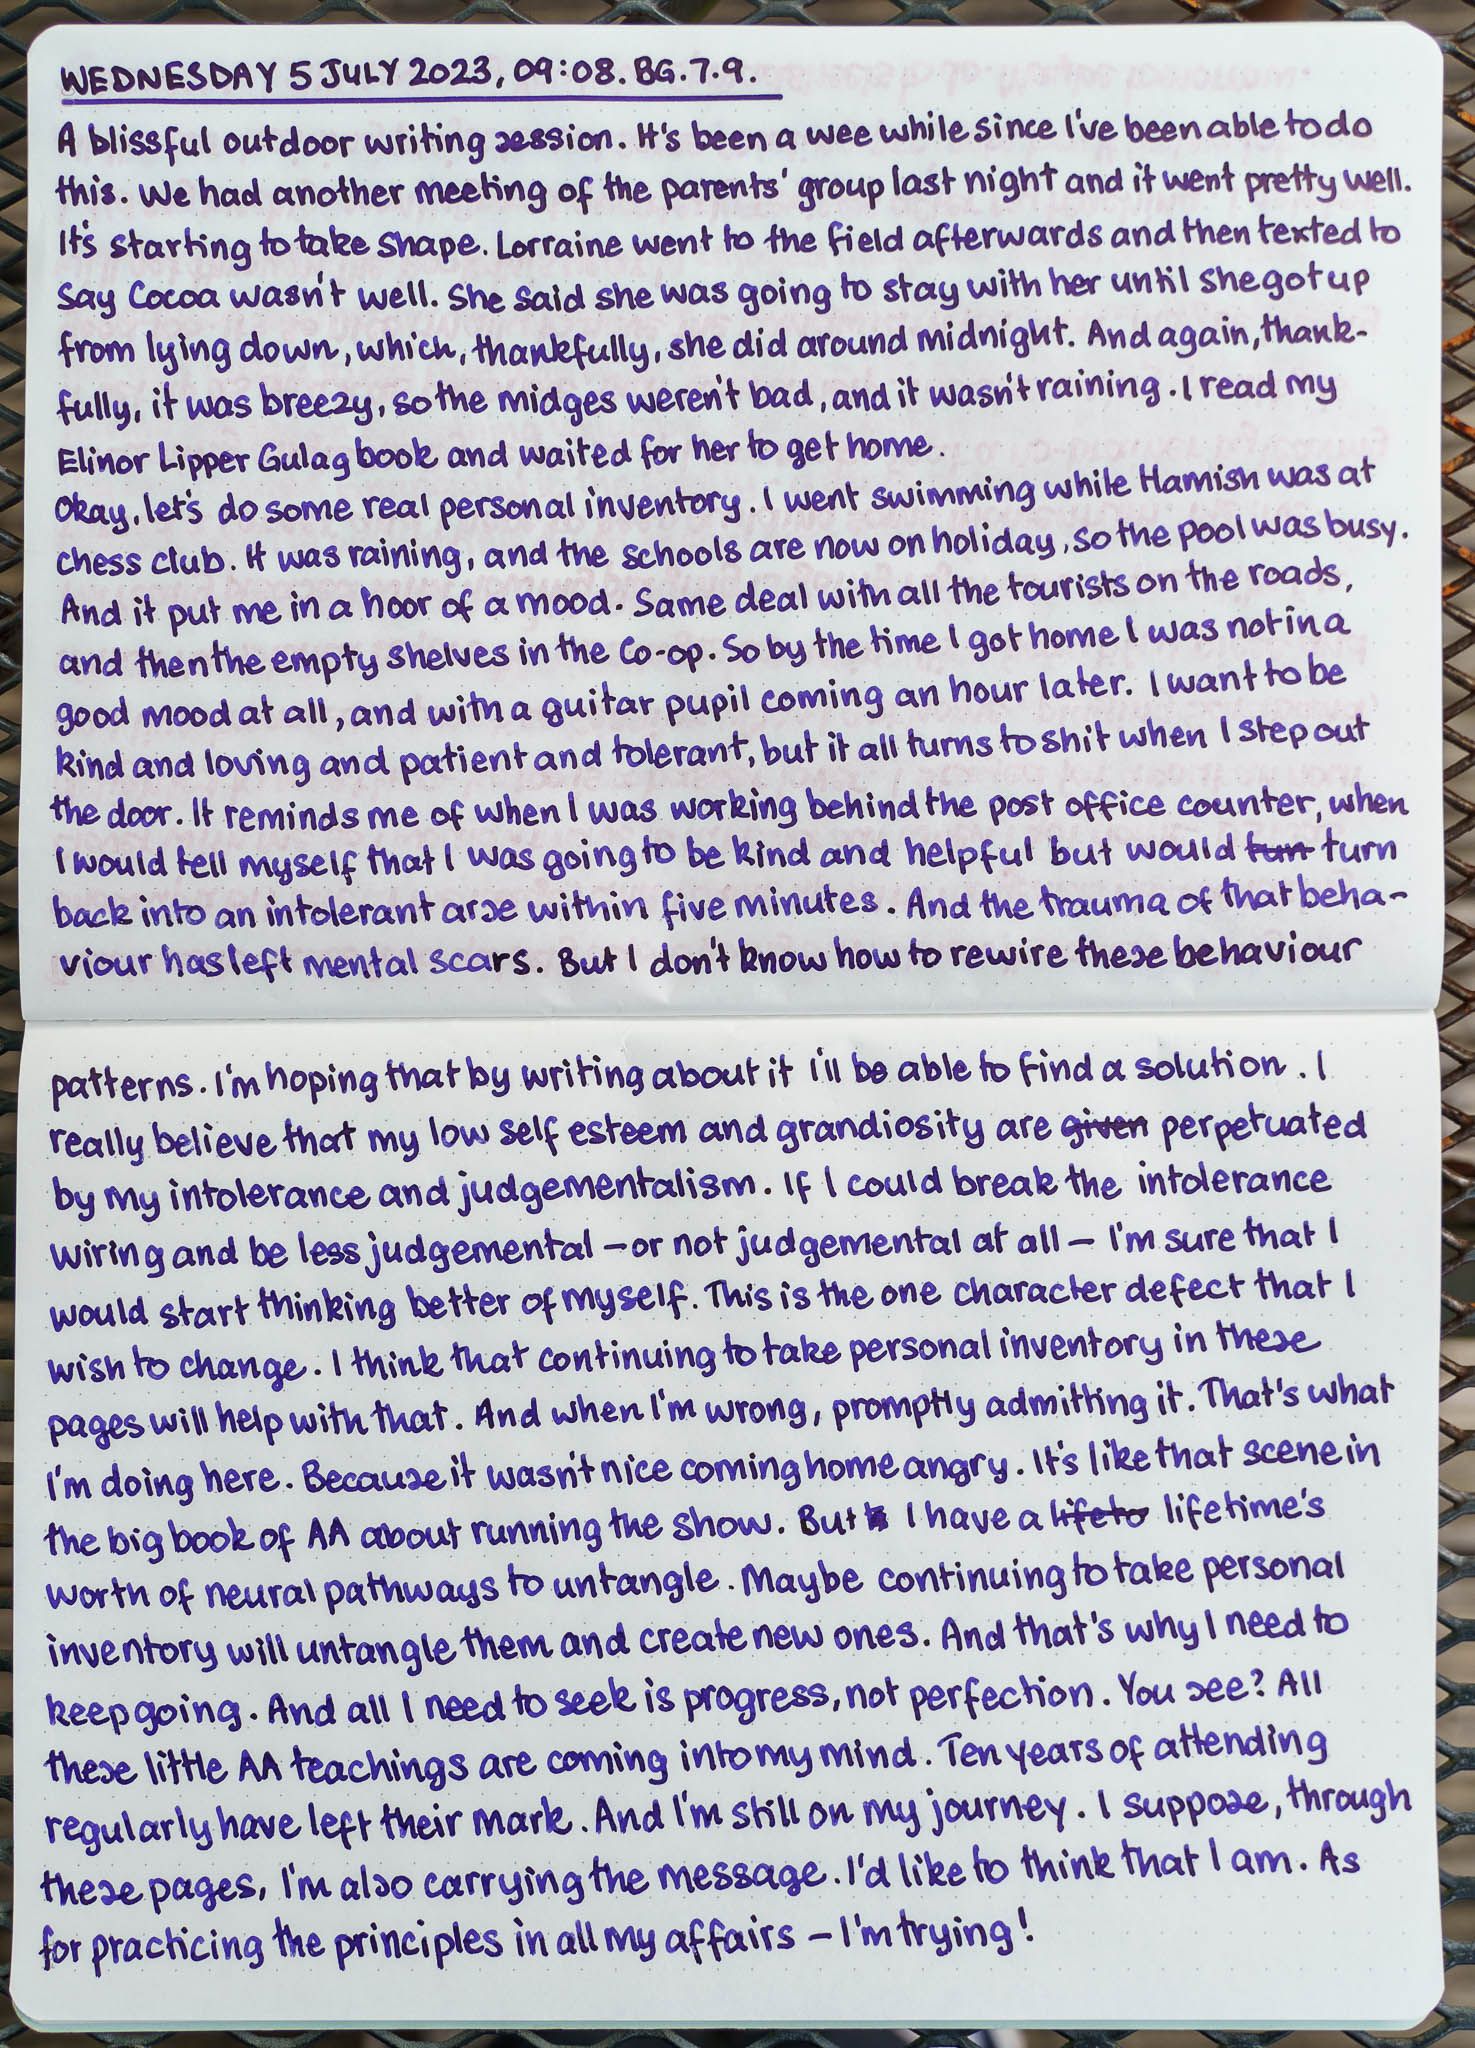 WEDNESDAY 5 JULY 2023, 09:08. BG.7.9.
A blissful outdoor writing session. It's been a wee while since I've been able to do
this. We had another meeting of the parents' group last night and it went pretty well.
It's starting to take shape. Lorraine went to the field afterwards and then texted to
say Cocoa wasn't well. She said she was going to stay with her until she got up
from lying down, which, thankfully, she did around midnight. And again, thank-
fully, it was breezy, so the midges weren't bad, and it wasn't raining. I read my
Elinor Lipper Gulag book and waited for her to get home.
Okay, let's do some real personal inventory. I went swimming while Hamish was at
chess club. It was raining, and the schools are now on holiday, so the pool was busy.
And it put me in a hoor of a mood. Same deal with all the tourists on the roads,
and then the empty shelves in the Co-op. So by the time I got home I was not in a
good mood at all, and with a guitar pupil coming an hour later. I want to be
kind and loving and patient and tolerant, but it all turns to shit when I step out
the door. It reminds me of when I was working behind the post office counter, when
I would tell myself that I was going to be kind and helpful but would turn
back into an intolerant arse within five minutes. And the trauma of that beha-
viour has left mental scars. But I don't know how to rewire these behaviour
patterns. I'm hoping that by writing about it I'll be able to find a solution. I
really believe that my low self esteem and grandiosity are given perpetuated
by my intolerance and judgementalism. If I could break the intolerance
wiring and be less judgemental – or not judgemental at all – I'm sure that I
would start thinking better of myself. This is the one character defect that I
wish to change. I think that continuing to take personal inventory in these
pages will help with that. And when I'm wrong, promptly admitting it. That's what
I'm doing here. Because it wasn't nice coming home angry. It's like that scene in
the big book of AA about running the show. But I have a lifeto lifetime's
worth of neural pathways to untangle. Maybe continuing to take personal
inventory will untangle them and create new ones. And that's why I need to
keep going. And all I need to seek is progress, not perfection. You see? All
these little AA teachings are coming into my mind. Ten years of attending
regularly have left their mark. And I'm still on my journey. I suppose, through
these pages, I'm also carrying the message. I'd like to think that I am. As
for practicing the principles in all my affairs – I'm trying!